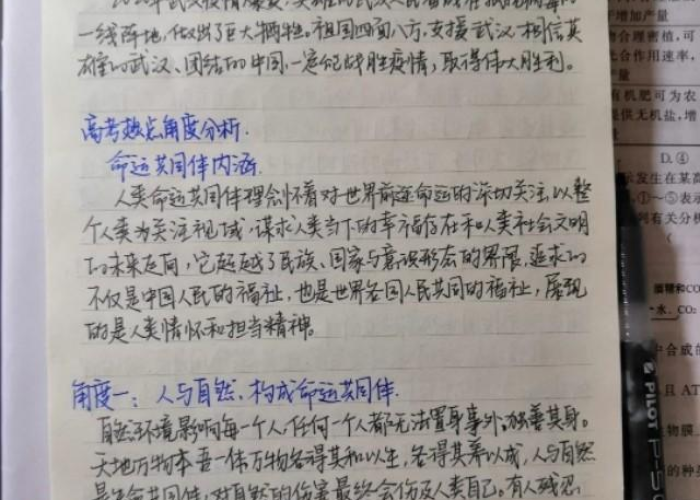 一线阵地,做出了巨大牺牲。祖国四面八方,支援武汉,相信英
雄的武汉、团结的中国,一定能战胜疫情,取得伟大胜利。
高考热点角度分析.
命运共同体内涵.
人类命运共同体理念怀着对世界前途命运的深切关注,以整
个人类为关注视域,谋求人类当下的幸福存在和人类社会文明
的未来走向,它超越了民族、国家与意识形态的界限,追求的
不仅是中国人民的福祉,也是世界各国人民共同的福祉,展现
的是人类情怀和担当精神。
角度一:人与自然、构成命运共同体.
自然环境影响每一个人,任何一个人都无法置身事外,独善其身。
天地万物本吾一体,万物各得其和以生,各得其养以成,人与自然
是生命共同体,对自然的伤害最终会伤及人类自己。有人
增加产量
物合理密植,可
光合作用速率,
量
有机肥可为农
提供无机盐,增
D.④
示发生在某高
,①~⑤表示
列有关分析
糖和CO
水、CO₂
中合成的
且AT
物膜
的种
PILOT P-50